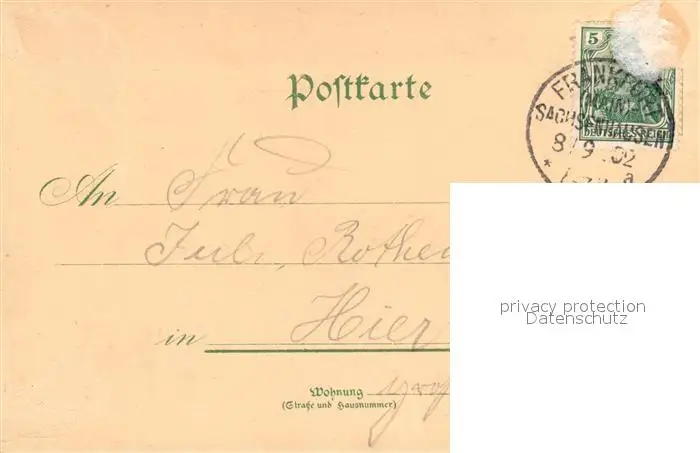 5
Postkarte
FRANKFURT
(MAIN)
SACHSENHAUSEN
DEUTSCHES REICH
8/9 .02
* a
An Frau
Jul. Rothe
in Hier
Wohnung
(Straße und Hausnummer)
privacy protection
Datenschutz